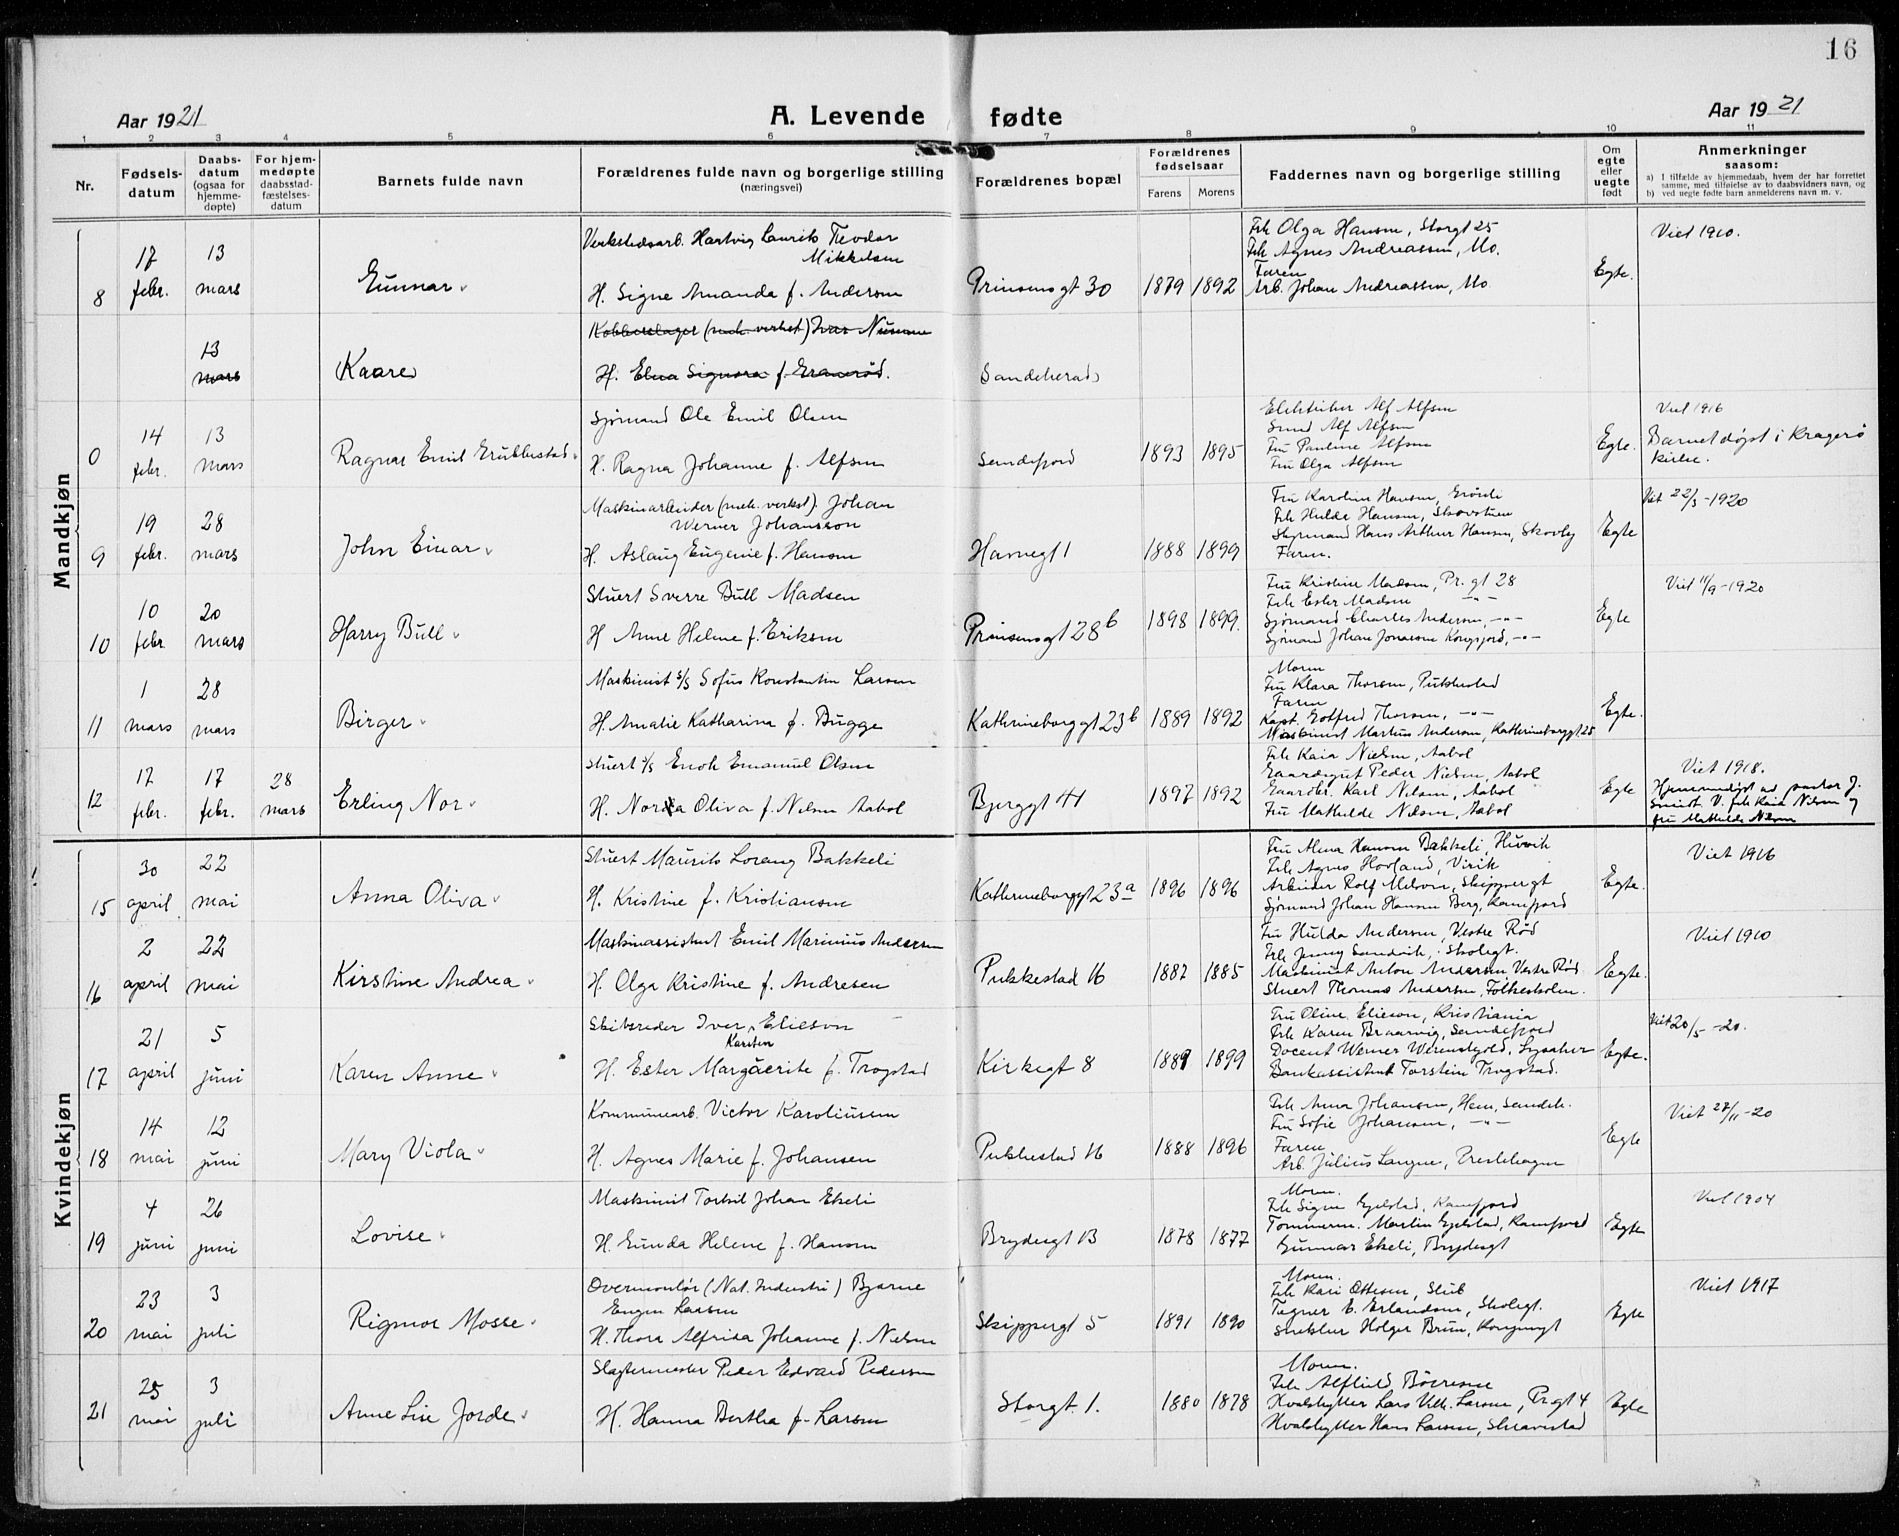 16
Aar 1921
A. Levende fødte
Aar 1921
1 2 3 4 5 6 7 8 9 10 11
Nr.
Fødsels-
datum
Daabs-
datum
(ogsaa for
hjemme-
døpte)
For hjem-
medøpte
daabsstad-
fæstelses-
datum
Barnets fulde navn
Forældrenes fulde navn og borgerlige stilling
(næringsvei)
Forældrenes bopæl
Forældrenes
fødselsaar
Farens Morens
Faddernes navn og borgerlige stilling
Om
egte
eller
uegte
født
Anmerkninger
saasom:
a) I tilfælde av hjemmedaab, hvem der har forrettet
samme, med tilføielse av to daabsvidners navn, og
b) ved uegte fødte barn anmelderens navn m. v.
Mandkjøn
8
17
febr.
13
mars
Gunnar
Verkstedsarb. Hartvig Laurits Teodor
Mikkelsen
H. Signe Amanda f. Andersen
Prinsensgt 30
1879 1892
Frk Olga Hansen, Storgt 25
Frk Agnes Andreassen, Mo.
Faren
Arb. Johan Andreassen, Mo
Egte.
Viet 1910.
13
mars
Kaare
Kobberslager (mek. verkst)
H. Elna Signora f.
Sandeherad
0
14
febr.
13
mars
Ragnar Emil Grubbestad
Sjømand Ole Emil Olsen
H. Ragna Johanne f. Alfsen
Sandefjord
1893 1895
Elektriker Alf Alfsen
Smed Alf Alfsen
Fru Pauline Alfsen
Fru Olga Alfsen
Egte.
Viet 1916
Barnet døpt i Kragerø
kirke.
9
19
febr.
28
mars
John Einar
Maskinarbeider (mek. verkst). Johan
Werner Johansson
H. Aslaug Eugenie f. Hansen
Havnegt 1
1888 1899
Fru Karoline Hansen,
Frk Hulda Hansen,
Styrmand Hans Arthur Hansen, Skovly
Faren.
Egte
Viet 22/5-1920
10
10
febr.
20
mars
Harry Bull
Stuert Sverre Bull Madsen
H Anne Helene f. Eriksen
Prinsensgt 28b
1898 1899.
Fru Kristine Madsen, Pr. gt 28
Frk Ester Madsen -"-
Sjømand Charles Andersen, -"-
Sjømand Johan Kongsfjord, -"-
Egte
Viet 11/9-1920
11
1
mars
28
mars
Birger
Maskinist s/s Sofus Konstantin Larsen
H. Amalie Katharina f. Bugge
Kathrineborggt 23b
1889 1892
Moren
Fru Klara Thorsen, Pukkestad
Faren
Kapt. Gotfred Thorsen, -"-
Maskinist Martius Andersen, Kathrineborggt 25
Egte.
12
17
febr.
17
febr.
28
mars
Erling Nor
Stuert s/s Enok Emanuel Olsen
H. Nora Oliva f. Nilsen Aabol
Bjerggt 41
1897 1892
Frk Kaia Nielsen, Aabol
Gaardsgut Peder Nielsen, Aabol
Gaardbr. Karl Nilsen, Aabol
Fru Mathilde Nilsen, Aabol
Egte
Viet 1918.
Hjemmedøpt av pastor J.
Smidt. V. frk Kaia Nilsen og
fru Mathilde Nilsen
Kvindekjøn
15
30
april
22
mai
Anna Oliva
Stuert Maurits Lorang Bakkeli
H. Kristine f. Kristiansen
Kathrineborggt 23a
1896 1896
Fru Alma Hansen Bakkeli,
Frk Agnes Hovland, Virik
Arbeider Rolf Nilsen, Skippergt
Sjømand Johan Hansen Berg, Kamfjord
Egte.
Viet 1916
16
2
april
22
mai
Kirstine Andrea
Maskinassistent Emil Marinius Andersen
H. Olga Kristine f. Andresen
Pukkestad 16
1882 1885
Fru Hulda Andersen, Vestre Rød
Frk Jenny Sandvik, Skolegt.
Maskinist Anton Andersen, Vestre Rød.
Stuert Thomas Andersen, Folkeskolen.
Egte.
Viet 1910
17
21
april
5
juni
Karen Anne
Skibsreder Iver Karsten Elieson
H. Ester Margáerite f. Trogstad
Kirkegt 8
1889 1899
Fru Oline Elieson, Kristiania
Frk Karen Braarvig, Sandefjord
Docent Werner Werenskjold, Lysaker
Bankassistent Torstein Trogstad.
Egte.
Viet 20/5-20.
18
14
mai
12
juni
Mary Viola
Kommunearb. Victor Karoliussen
H. Agnes Marie f. Johansen
Pukkestad 16
1888 1896
Frk Anna Johansen, Hem, Sandeh.
Fru Sofie Johansen, -"-
Faren
Arb. Julius Langne, Prestehagen
Egte
Viet 27/11-20
19
4
juni
26
juni
Lovise
Maskinist Torkil Johan Ekeli
H. Gunda Helene f. Hansen
Brydesgt 13
1878 1877
Moren.
Frk Signe Gjelstad, Kamfjord
Tømmerm. Martin Gjelstad, Kamfjord
Gunnar Ekeli, Brydesgt
Egte
Viet 1904
20
23
mai
3
juli
Rigmor Mosse
Overmontør (Nat. Industri) Bjarne
Eugen Larsen
H. Thora Alfrida Johanne f. Nilsen
Skippergt 5
1891 1890
Moren.
Frk Kari Ottesen, Slub
Tegner E. Erlandsen, Skolegt.
Snekker Holger Brun, Kongensgt
Egte
Viet 1917
21
25
mai
3
juli
Anne Lise Jorde
Slagtermester Peder Edvard Pedersen
H. Hanna Bertha f. Larsen
Storgt. 1.
1880 1878
Moren.
Frk Alfhild Børresen
Hvalskytter Lars Vilh. Larsen, Pr gt 4
Hvalskytter Hans Larsen, Skravestad
Egte